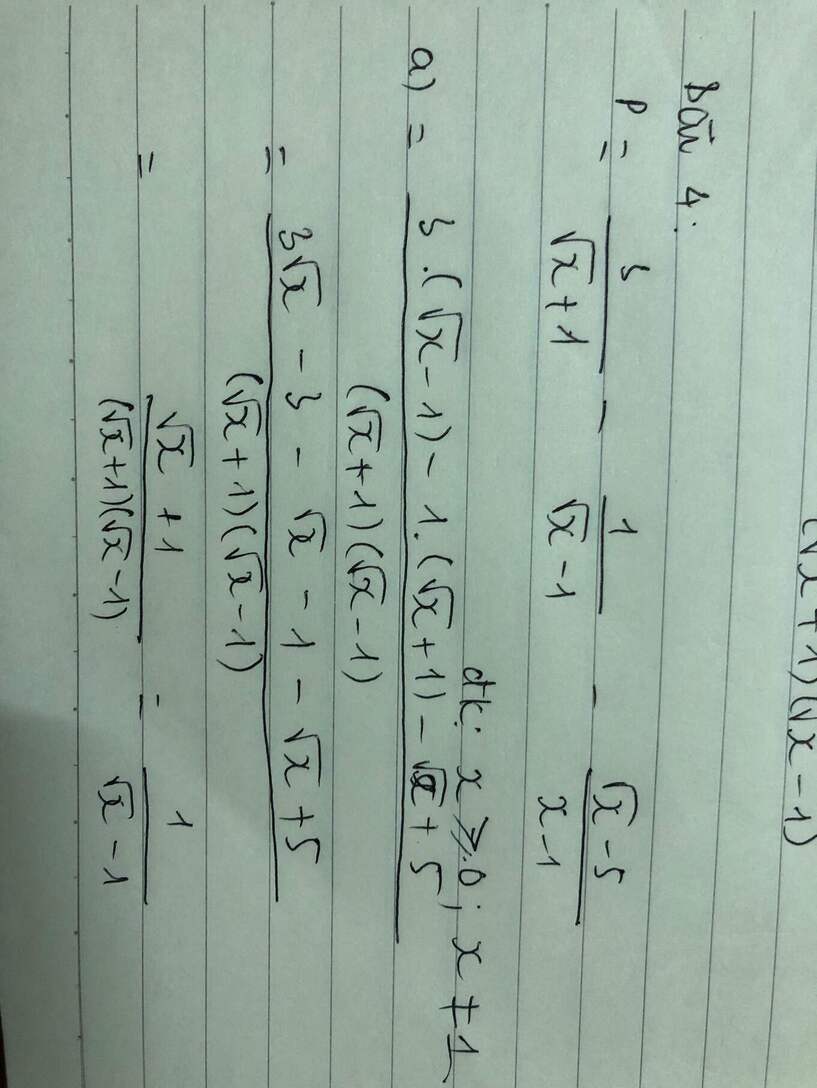 (√x + 1)(√x - 1)
Bài 4:
P = 3/(√x + 1) - 1/(√x - 1) - (√x - 5)/(x - 1)
đk: x ≥ 0; x ≠ 1
a) = (3.(√x - 1) - 1.(√x + 1) - √x + 5)/((√x + 1)(√x - 1))
= (3√x - 3 - √x - 1 - √x + 5)/((√x + 1)(√x - 1))
= (√x + 1)/((√x + 1)(√x - 1)) = 1/(√x - 1)